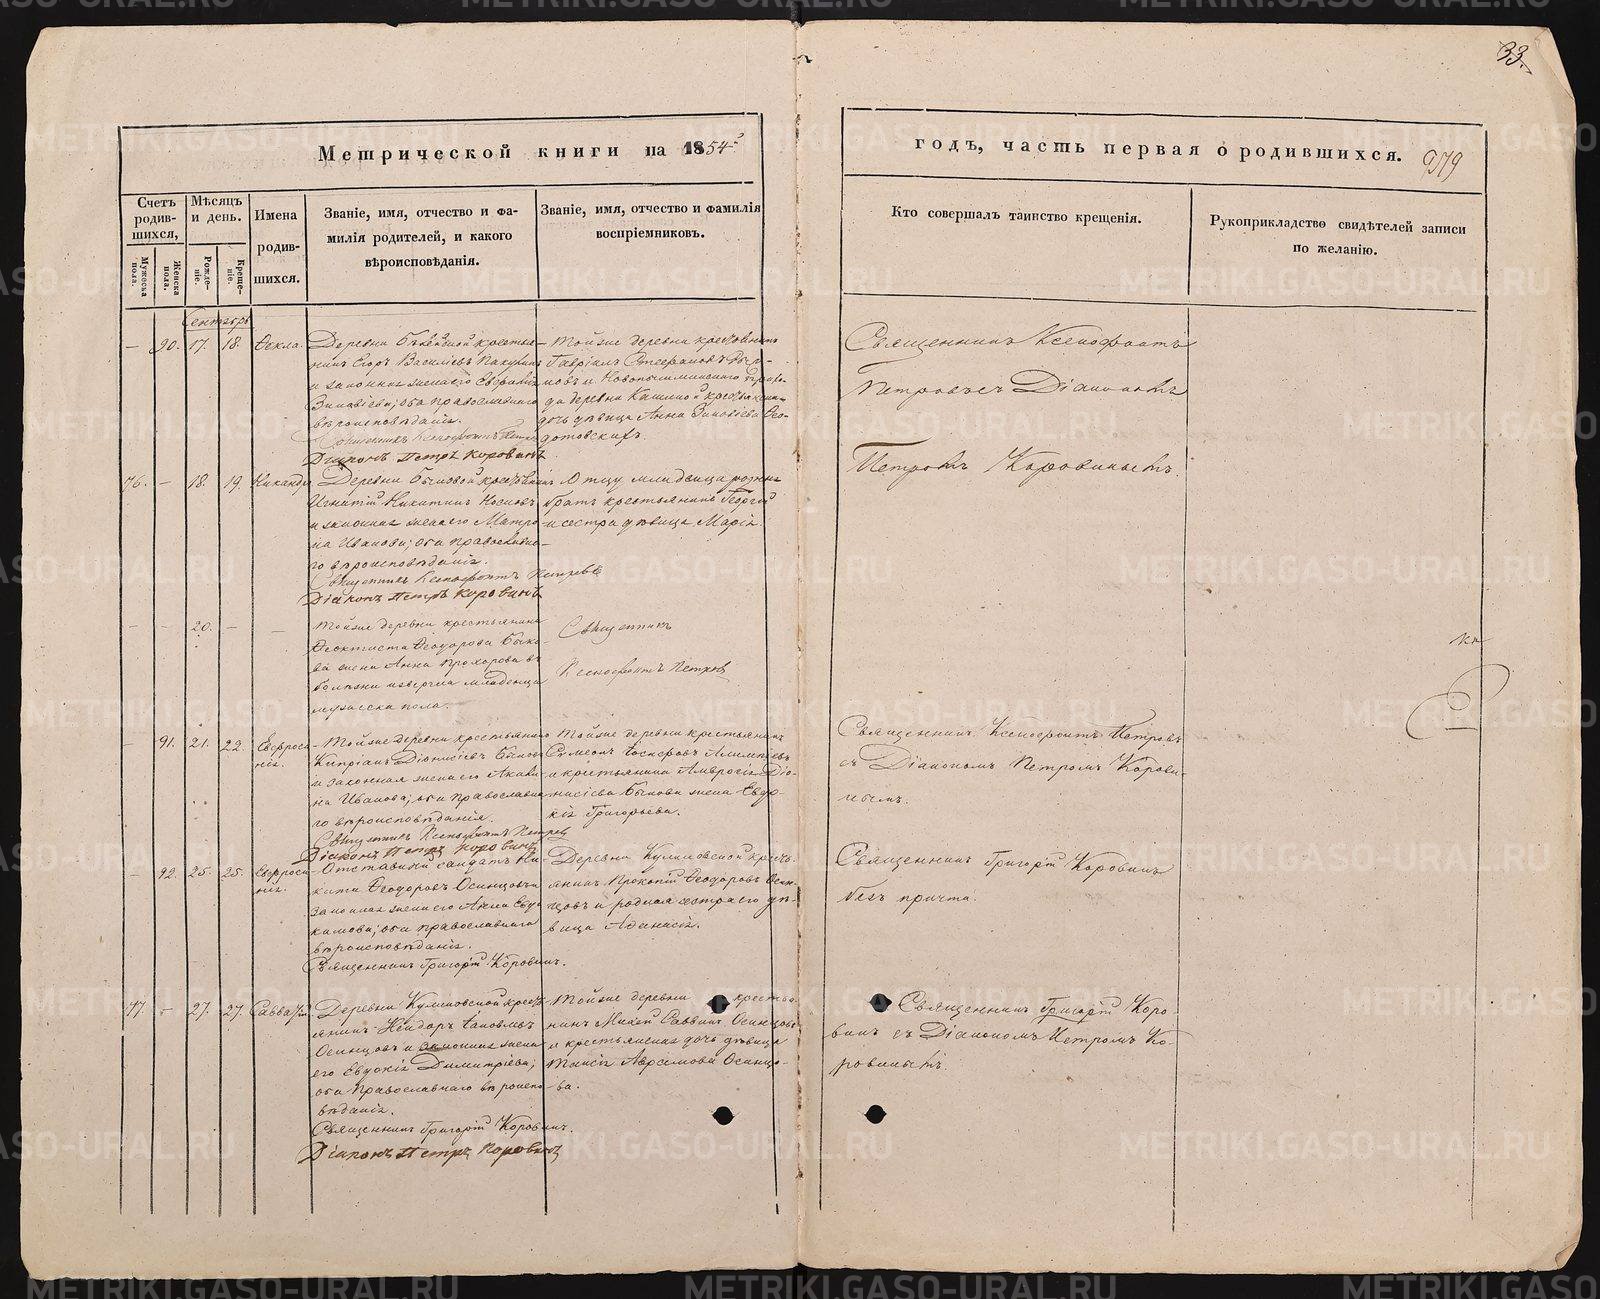 33.
Метрической книги на 1854й
годъ, часть первая о родившихся. 979
Счетъ родив-шихся,
Мужеска пола.
Женска пола.
Мѣсяцъ и день.
Рожде-ніе.
Креще-ніе.
Имена родив-шихся.
Званіе, имя, отчество и фа-
милія родителей, и какого
вѣроисповѣданія.
Званіе, имя, отчество и фамилія
воспріемниковъ.
Кто совершалъ таинство крещенія.
Рукоприкладство свидѣтелей записи
по желанію.
Сентябрь
— 90. 17. 18. Ѳекла.
Деревни крестья-
нинъ Егоръ Васильевъ
и законная жена его
Зиновіева; оба православнаго
вѣроисповѣданія.
Священникъ Ксенофонтъ Петровъ
Діаконъ Петръ Коровинъ
Тойже деревни крестьянинъ
Гавріилъ Стефановъ
да деревни крестьянина
дочь дѣвица Анна Зиновіева Ѳео-
дотовскихъ.
Священникъ Ксенофонтъ
Петровъ съ Діакономъ
Петромъ Коровинымъ.
76. — 18. 19. Никандръ
Деревни Быковой крестьянинъ
Игнатій Никитинъ Носковъ
и законная жена его Матро-
на Иванова; оба православна-
го вѣроисповѣданія.
Священникъ Ксенофонтъ Петровъ
Діаконъ Петръ Коровинъ
Отцу младенца родный
братъ крестьянинъ Георгій
и сестра дѣвица Марія.
— — 20. — —
Тойже деревни крестьянина
Ѳеоктиста Ѳеодорова Быко-
ва жена Анна Прохорова въ
болѣзни извергла младенца
мужеска пола.
Священникъ
Ксенофонтъ Петровъ
— 91. 21. 22. Евфроси-
нія.
Тойже деревни крестьянинъ
Кипріанъ Діонисіевъ Быковъ
и законная жена его Акили-
на Иванова; оба православна-
го вѣроисповѣданія.
Священникъ Ксенофонтъ Петровъ
Діаконъ Петръ Коровинъ
Тойже деревни крестьянинъ
Симеонъ
и крестьянина Амвросія Діо-
нисіева Быкова жена Евдо-
кія Григорьева.
Священникъ Ксенофонтъ Петровъ
съ Діакономъ Петромъ Корови-
нымъ.
— 92. 25. 25. Евфроси-
нія.
Отставный салдатъ Ни-
кита Ѳеодоровъ Осинцовъ и
законная жена его Анна Евдо-
кимова; оба православнаго
вѣроисповѣданія.
Священникъ Григорій Коровинъ.
Деревни Куликовской кресть-
янинъ Прокопій Ѳеодоровъ Осин-
цовъ и родная сестра его дѣ-
вица Аѳанасія.
Священникъ Григорій Коровинъ
безъ причта.
77. — 27. 27. Савватій
Деревни Куликовской кресть-
янинъ Исидоръ Іаковлевъ
Осинцовъ и законная жена
его Евдокія Димитріева;
оба Православнаго вѣроиспо-
вѣданія.
Священникъ Григорій Коровинъ.
Діаконъ Петръ Коровинъ
Тойже деревни крестья-
нинъ Михей Саввинъ Осинцовъ
и крестьянская дочь дѣвица
Таисія Аврамова Осинцо-
ва.
Священникъ Григорій Коро-
винъ съ Діакономъ Петромъ Ко-
ровинымъ.